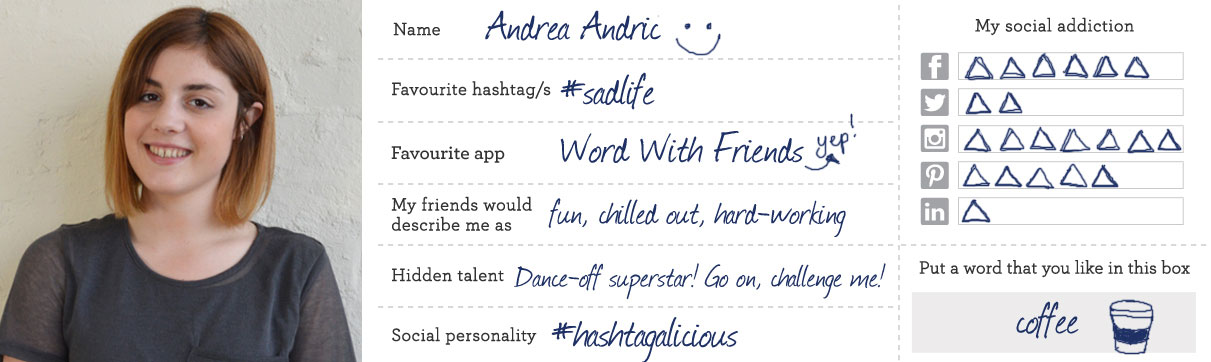 Name Andrea Andric
Favourite hashtag/s #sadlife
Favourite app Word With Friends yep!
My friends would
describe me as fun, chilled out, hard-working
Hidden talent Dance-off superstar! Go on, challenge me!
Social personality #hashtagalicious
My social addiction
f
in
Put a word that you like in this box
coffee